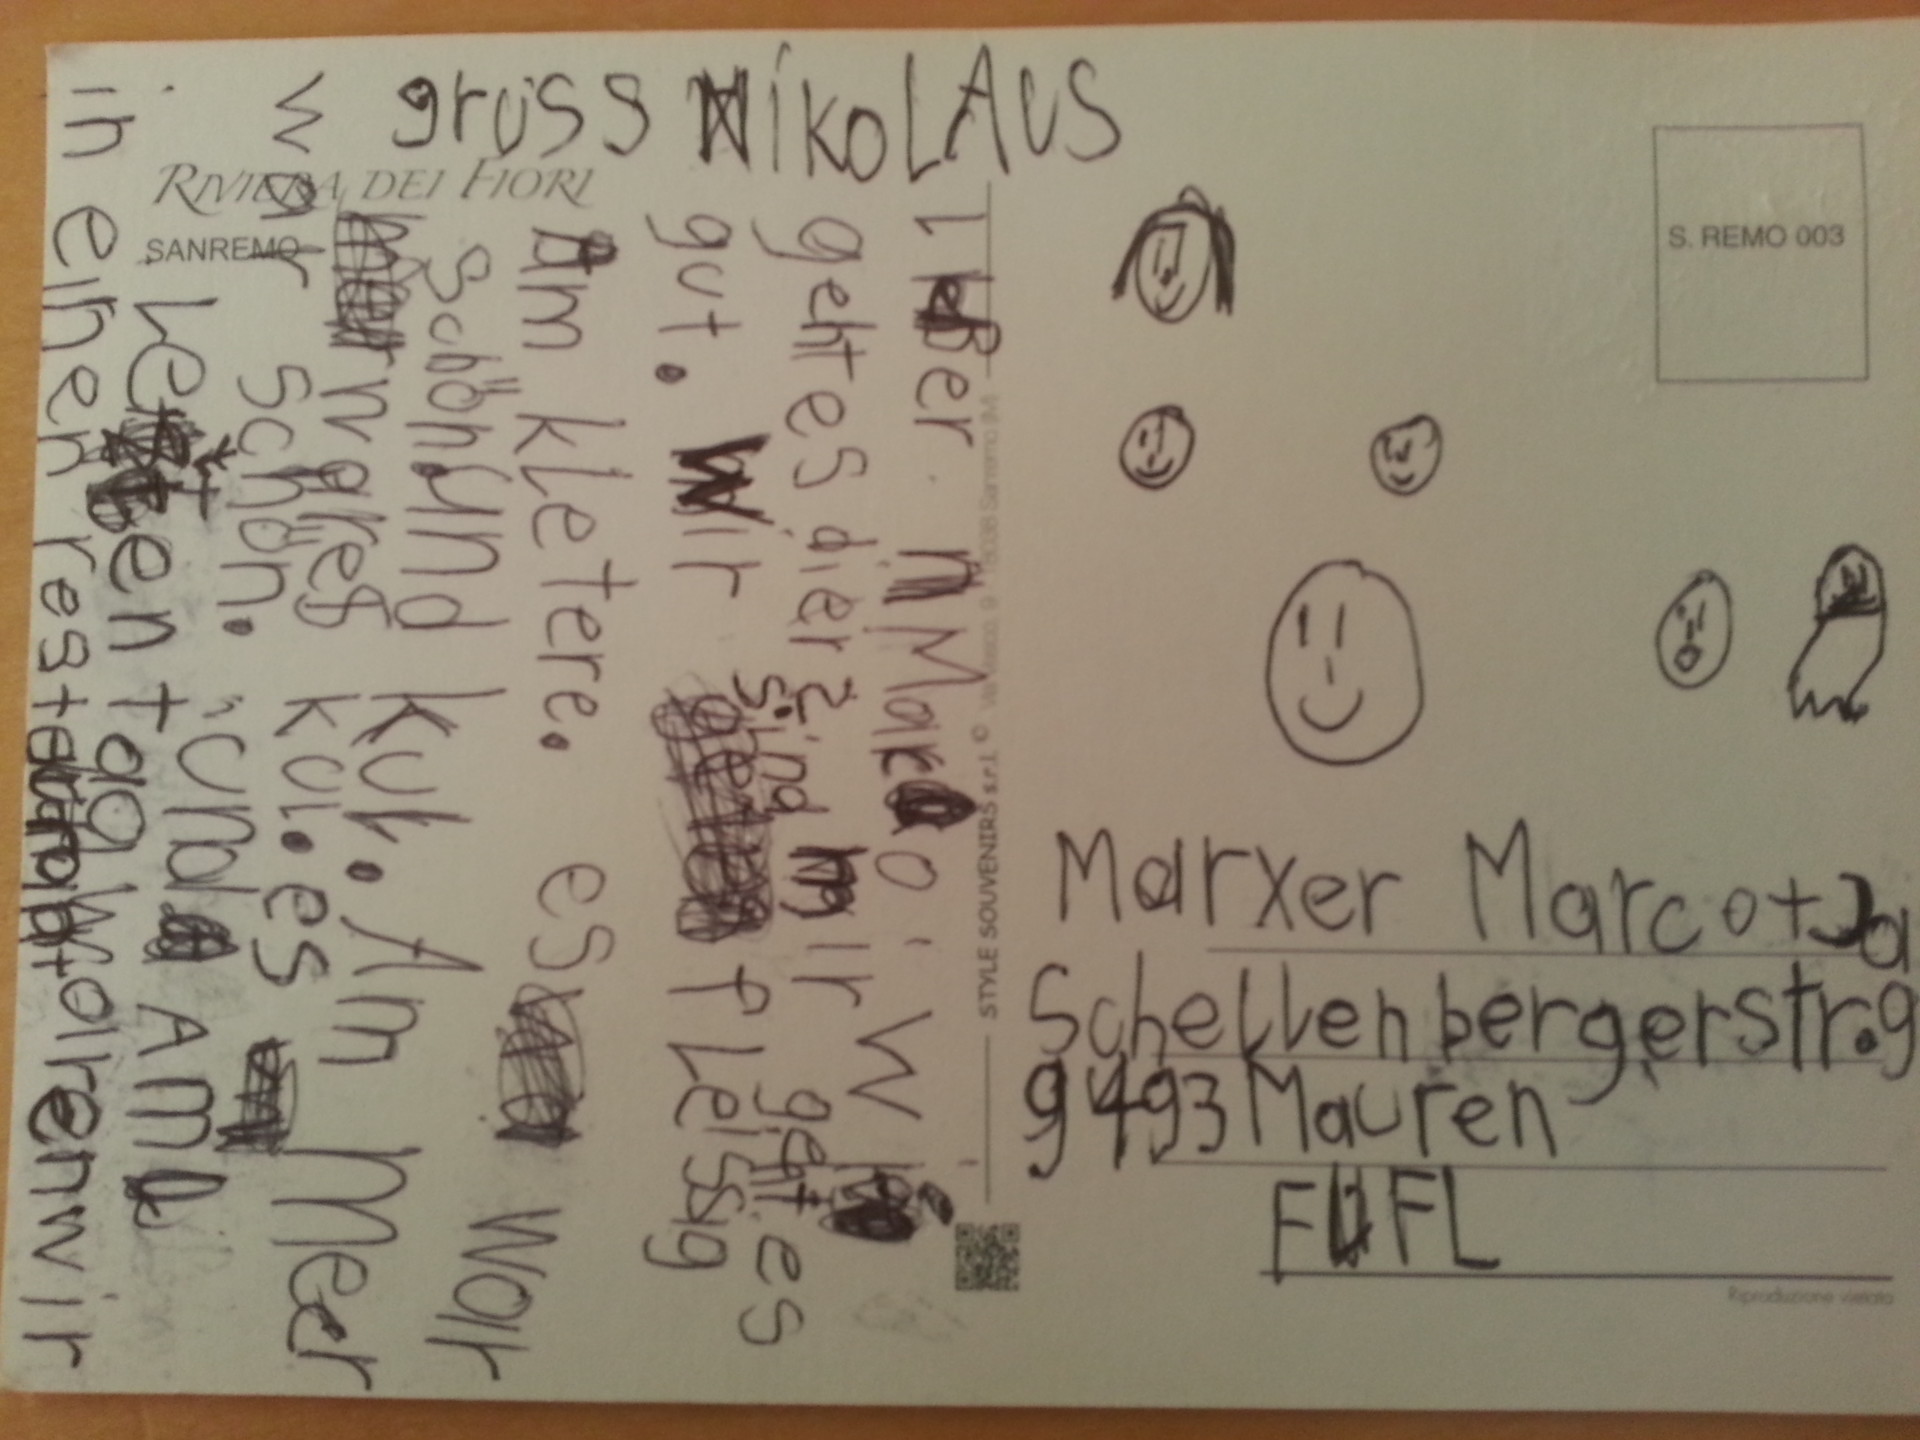 grüss NikoLAUS
RIVIERA DEI FIORI
SANREMO
Liber Marco. W
geht es dier? mir geht es
gut. Wir sind fLeissig
am kLetere. es wor
Schön und kul. Am Meer
wares kul. es
war Schön. und Am
Letten tag wolren wir
in einen restaurant
STYLE SOUVENIRS s.r.l. ©
S. REMO 003
Marxer Marco + Ja
Schellenbergerstr. 9
9493 Mauren
FL
Riproduzione vietata